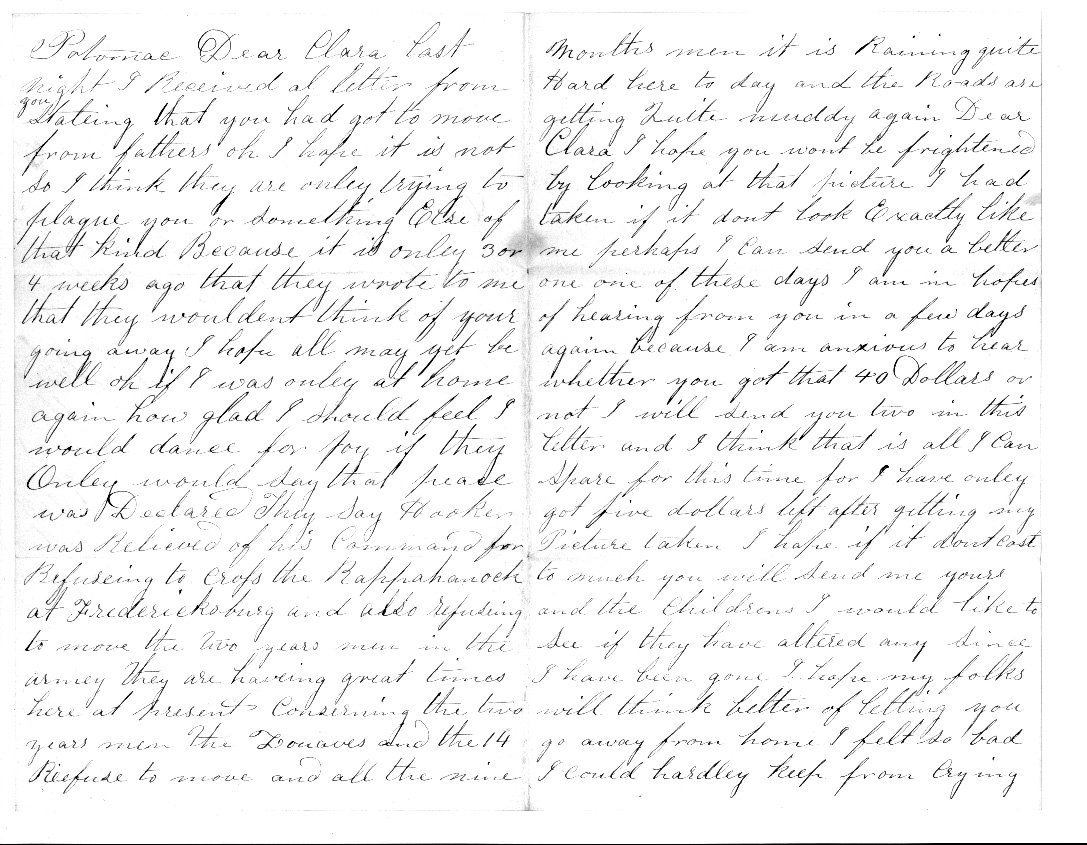 Potomac Dear Clara last
night I Received al letter from
you
Stateing that you had got to move
from fathers oh I hope it is not
so I think they are onley trying to
plague you or something Else of
that kind Because it is onley 3 or
4 weeks ago that they wrote to me
that they wouldent think of your
going away I hope all may yet be
well oh if I was onley at home
again how glad I should feel I
would dance for joy if they
Onley would say that pease
was Declared They say Hooker
was Relieved of his Command for
Refuseing to Cross the Rappahanock
at Fredericksburg and also refusing
to move the two years men in the
armey they are having great times
here at present Conserning the two
years men the Zouaves and the 14
Reefuse to move and all the nine
Months men it is Raining quite
Hard here to day and the Roads are
getting Quite muddy again Dear
Clara I hope you wont be frightened
by looking at that picture I had
taken if it dont look Exactly like
me perhaps I Can send you a better
one one of these days I am in hopes
of hearing from you in a few days
again because I am anxious to hear
whether you got that 40 Dollars or
not I will send you two in this
letter and I think that is all I Can
Spare for this time for I have onley
got five dollars left after gitting my
Picture taken I hope if it dont cost
to much you will send me yours
and the Childrens I would like to
see if they have altered any since
I have been gone I hope my folks
will think better of letting you
go away from home I felt so bad
I could hardley keep from Crying